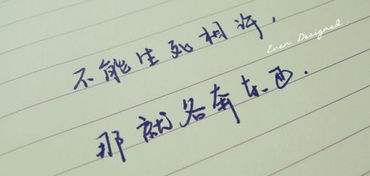 不能生死相许,
Even Designed
那就各奔东西.